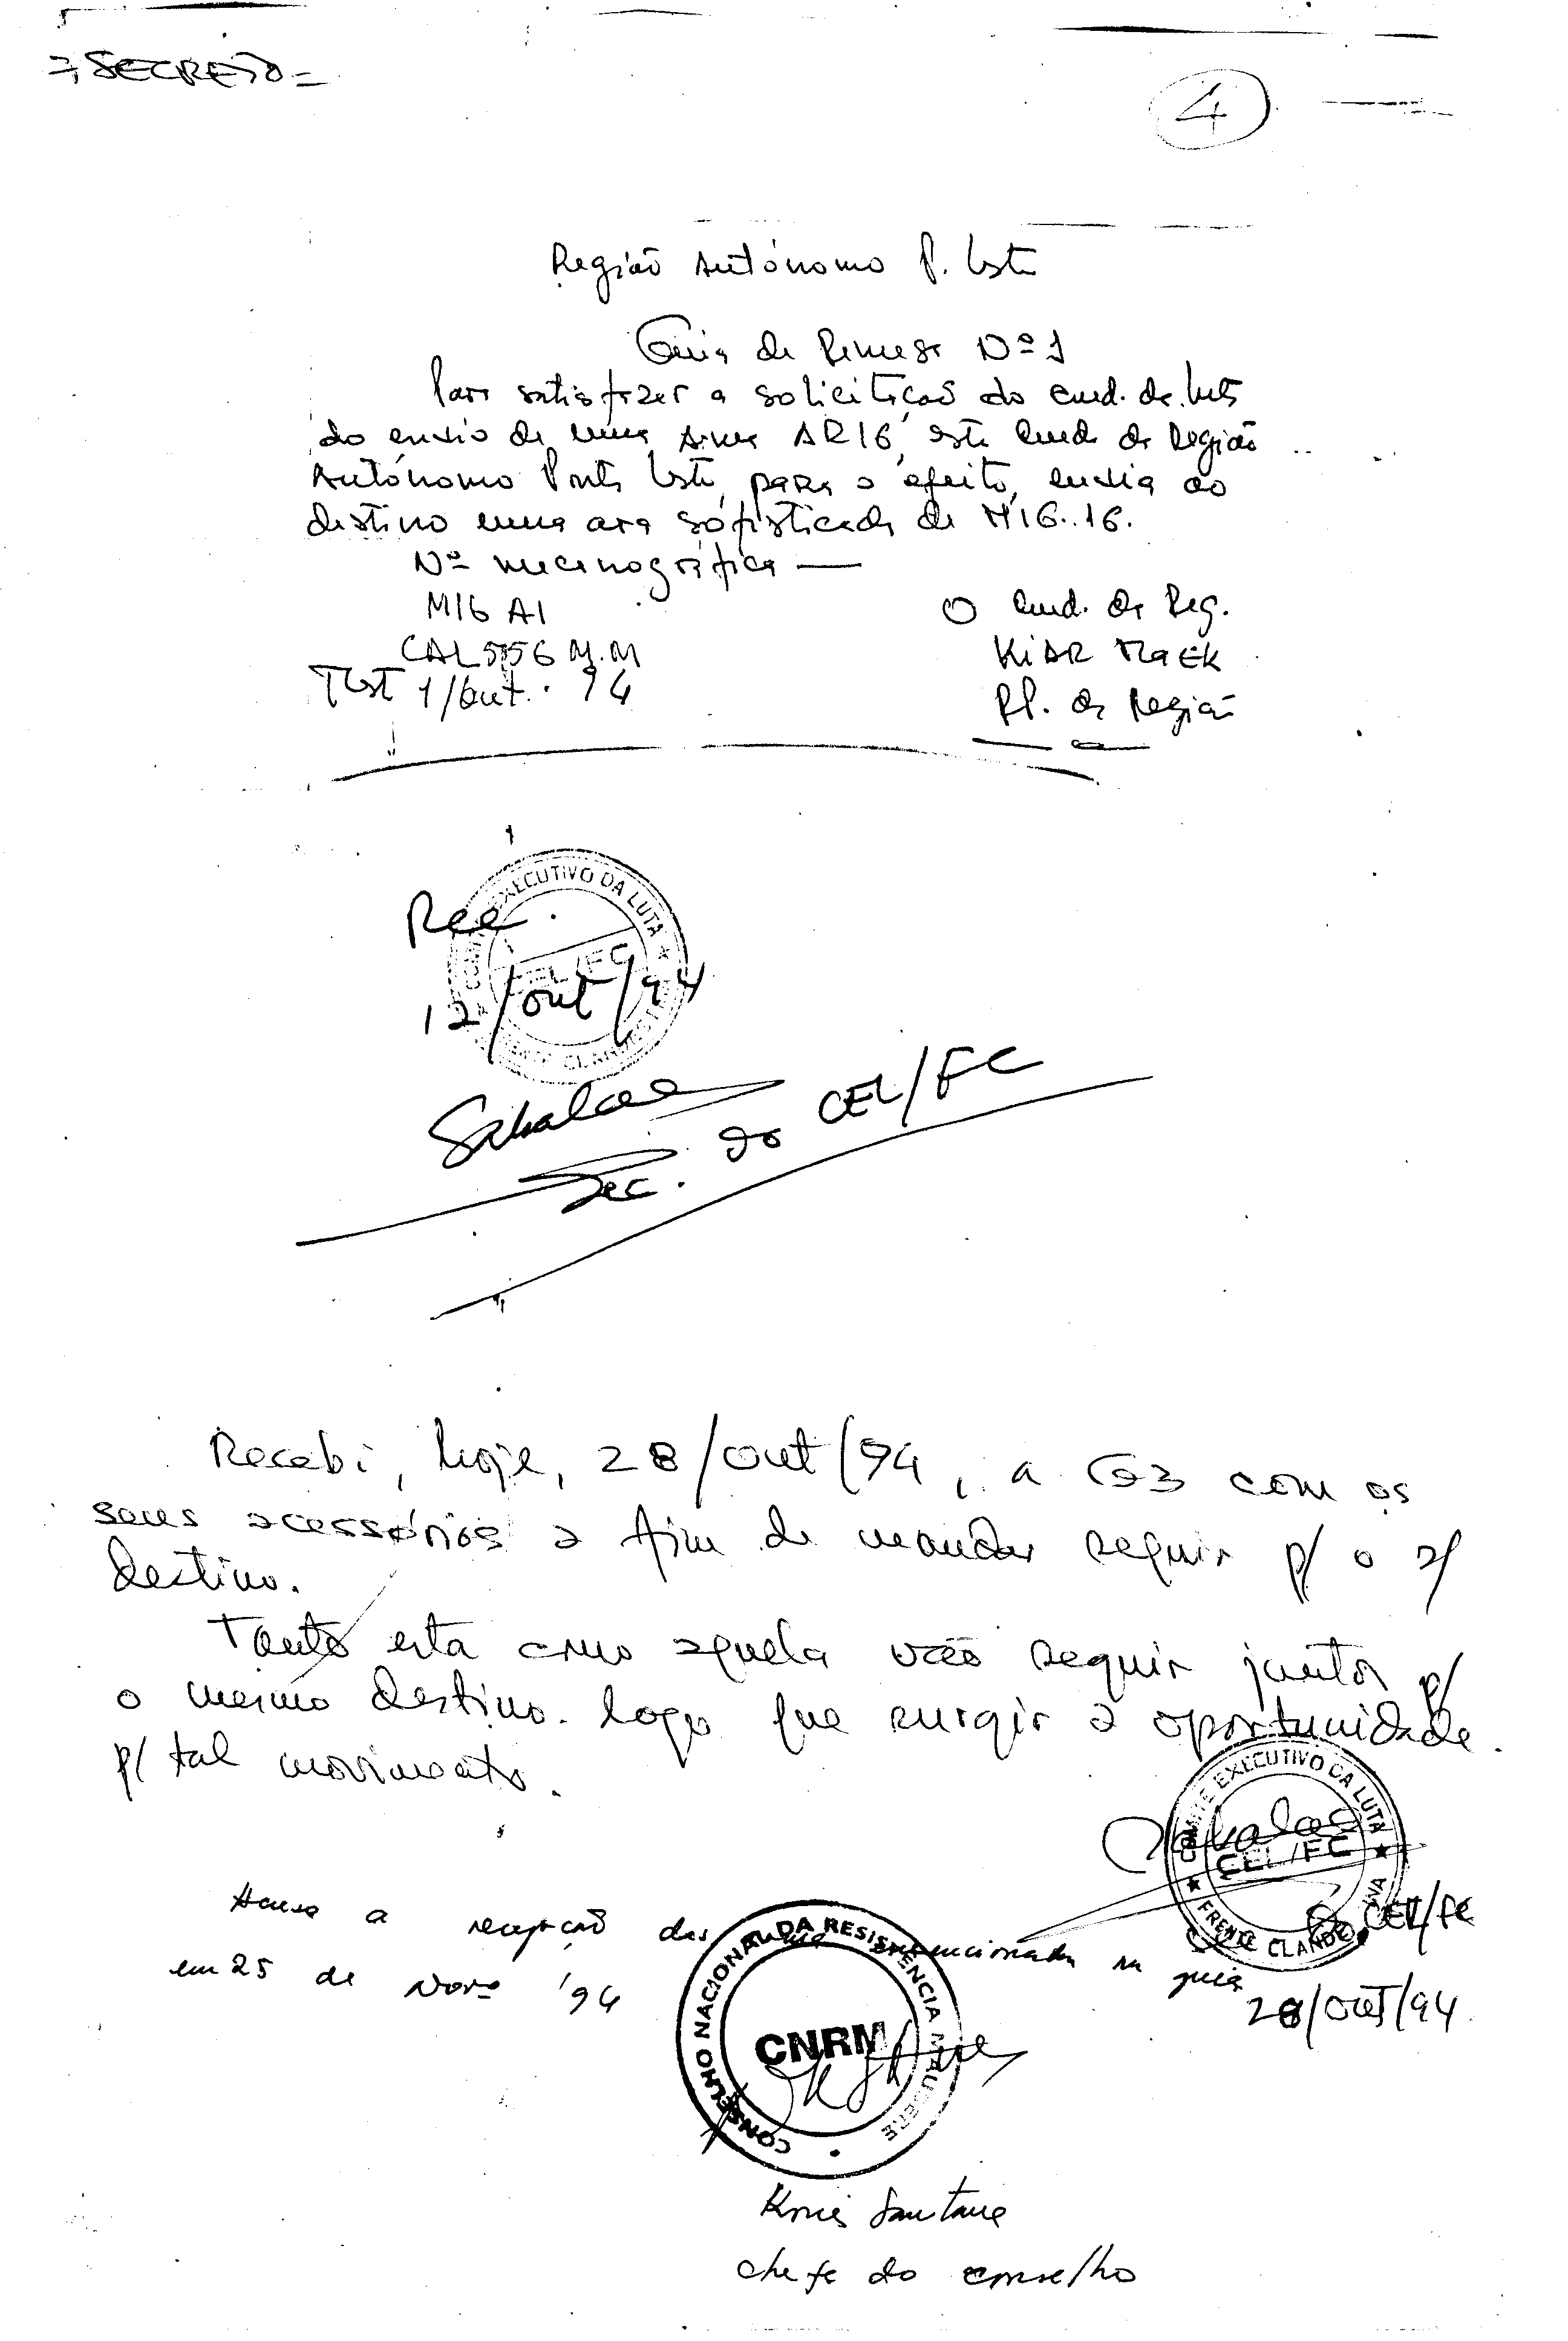 = SECRETO =
4
Região Autónomo P. Leste
Guia de Remessa Nº 1
Para satisfazer a solicitação do Cmd. da Luta
do envio de uma arma AR16, este Cmd. da Região
Autónomo Ponta Leste, para o efeito, envia ao
destino uma ara sofisticada de M16..16.
Nº mecanográfica —
M16 A1
CAL 5556 M.M
1/Out. 94
O Cmd. da Reg.
KiAR MaEK
RP. da Região
Rec.
COMITÉ EXECUTIVO DA LUTA
CEL/FC
FRENTE CLANDESTINA
12/out/94
Sabalae
Sec. do CEL/FC
Recebi, hoje, 28/out/94, a G3 com os
seus acessórios a fim de mandar seguir p/ o s/
destino.
Tanto esta como aquela vão seguir juntos p/
o mesmo destino. logo que surgir a oportunidade
p/ tal movimento.
COMITÉ EXECUTIVO DA LUTA
Sabalae
CEL/FC
FRENTE CLANDE
CEL/FC
28/OUT/94
Houve a recepção das armas mencionadas na guia
em 25 de Novº '94
CONSELHO NACIONAL DA RESISTÊNCIA MAUBERE
CNRM
Konis Santana
Chefe do conselho